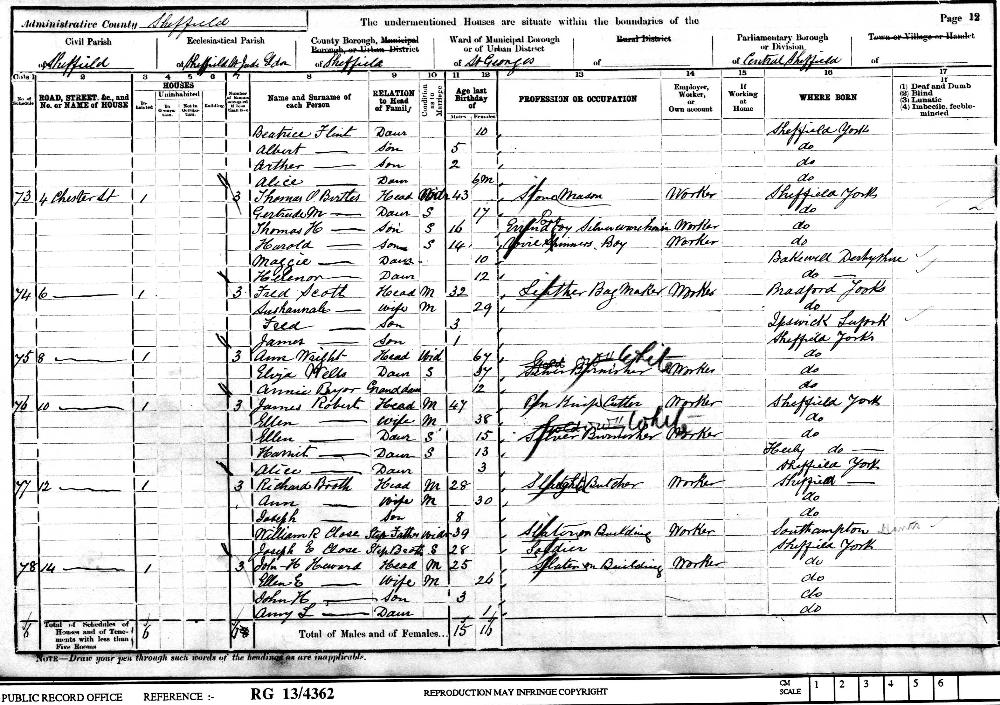 Administrative County Sheffield The undermentioned Houses are situate within the boundaries of the Page 12
Civil Parish of Sheffield
Ecclesiastical Parish of Sheffield St Judes
County Borough, Municipal Borough, or Urban District of Sheffield
Ward of Municipal Borough or of Urban District of St Georges
Rural District
Parliamentary Borough or Division of Central Sheffield
Town or Village or Hamlet of
No. of Schedule ROAD, STREET, &c., and No. or NAME of HOUSE HOUSES Inhabited Uninhabited In Occupation Not in Occupation Building Name and Surname of each Person RELATION to Head of Family Condition as to Marriage Age last Birthday of Males Females PROFESSION OR OCCUPATION Employer, Worker, or Own account If Working at Home WHERE BORN If (1) Deaf and Dumb (2) Blind (3) Lunatic (4) Imbecile, feeble-minded
Beatrice Flint Daur 10 Sheffield York
Albert — Son 5 do
Arther — Son 2 do
Alice — Daur 6m do
73 4 Chester St 1 3 Thomas Head 43 Stone Mason Worker Sheffield York
Gertrude M — Daur S 17 do
Thomas H — Son S 16 Errand Boy Silver Worker do
Harold — Son S 14 Boy Worker do
Maggie — Daur 10 Bakewell Derbyshire
— Daur 12 do —
74 6 — 1 3 Fred Scott Head M 32 Leather Bag Maker Worker Bradford Yorks
Sushannah — Wife M 29 do
Fred — Son 3 Ipswich Sufork
James — Son 1 Sheffield Yorks
75 8 — 1 3 Ann Wright Head Wid 67 do
Daur S 37 Silver Burnisher Worker do
Annie Granddaur 12 do
76 10 — 1 3 James Robert Head M 47 Pen Knife Cutler Worker Sheffield York
Ellen — Wife M 38 do
Ellen — Daur S 15 Silver Burnisher Worker do
Harriet — Daur S 13 Heely do —
Alice — Daur 3 Sheffield York
77 12 — 1 3 Richard Broth Head M 28 Butcher Worker Sheffield —
Ann — Wife M 30 do
Joseph — Son 8 do
William R Close Step Father Wid 39 Slater on Building Worker Southampton
Joseph E Close Step Broth S 28 Soldier Sheffield York
78 14 — 1 3 John H Heward Head M 25 Slater on Building Worker do
Ellen E — Wife M 24 do
John H — Son 3 do
Amy L — Daur 1 do
6 Total of Schedules of Houses and of Tenements with less than Five Rooms 6 Total of Males and of Females... 15 16
NOTE—Draw your pen through such words of the headings as are inapplicable.
PUBLIC RECORD OFFICE REFERENCE :- RG 13/4362 REPRODUCTION MAY INFRINGE COPYRIGHT CM SCALE 1 2 3 4 5 6